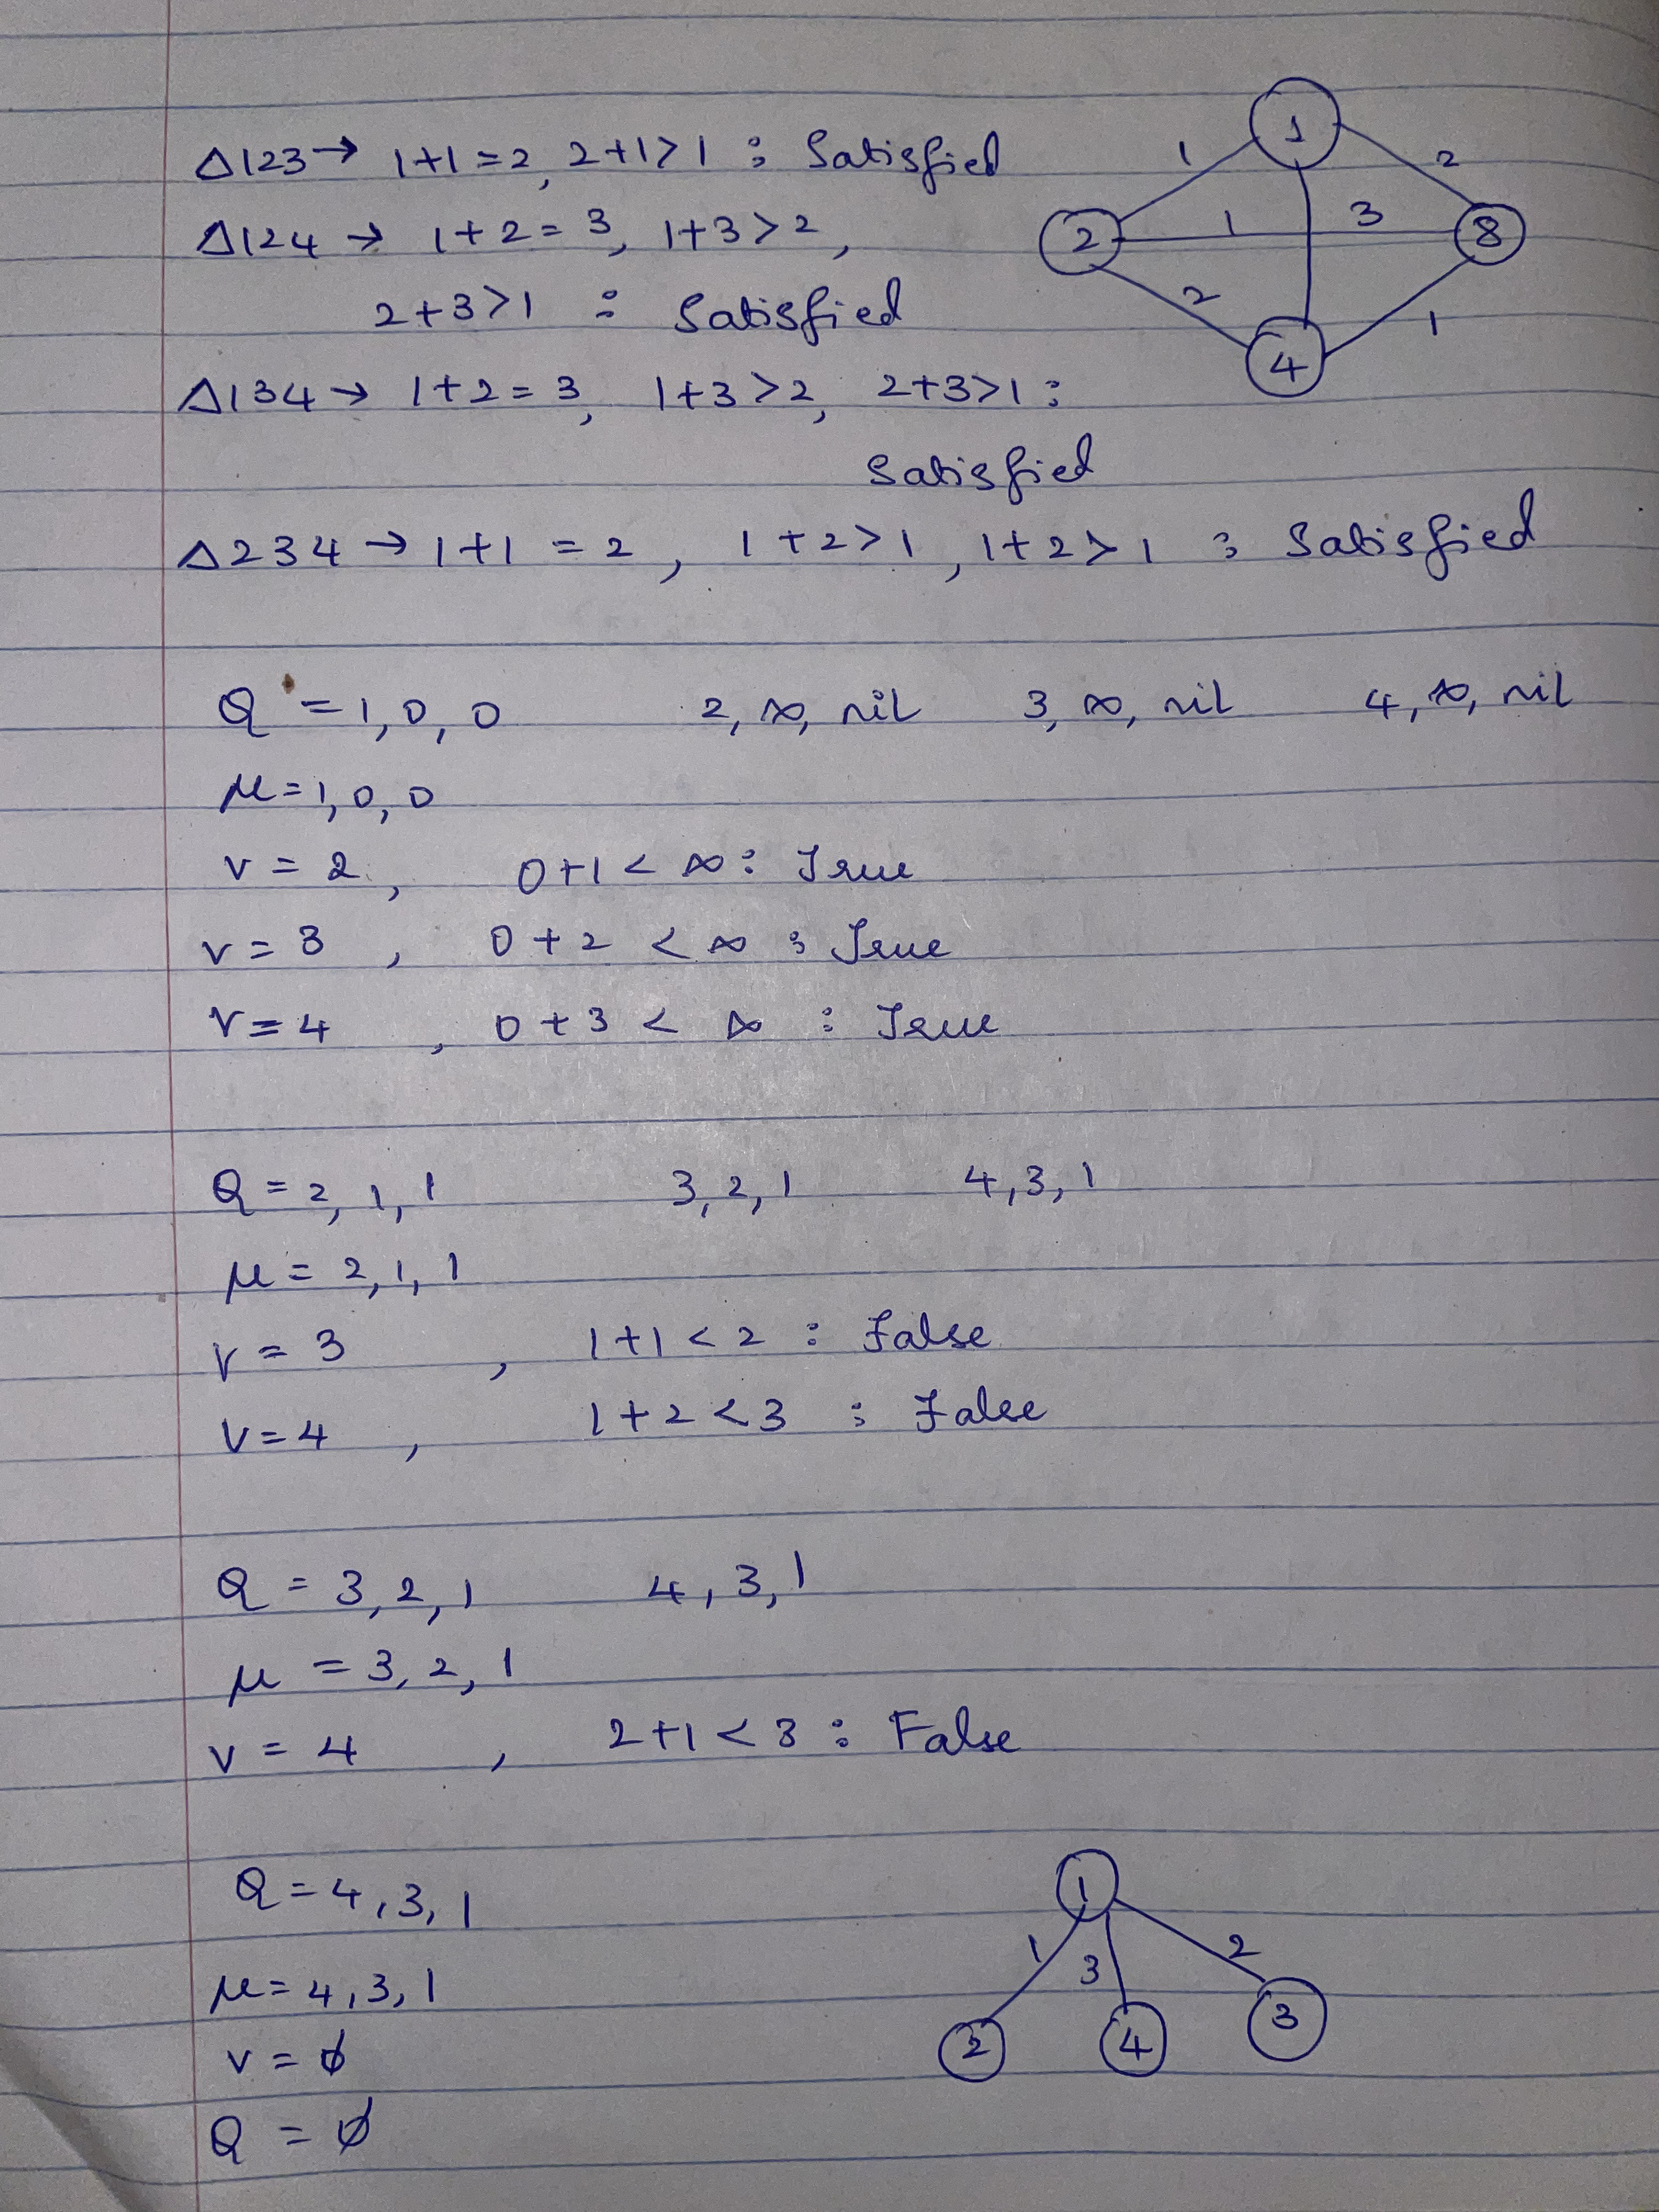 Δ123 → 1+1=2, 2+1>1 : Satisfied
Δ124 → 1+2=3, 1+3>2,
2+3>1 : Satisfied
Δ134 → 1+2=3, 1+3>2, 2+3>1 :
Satisfied
Δ234 → 1+1=2, 1+2>1, 1+2>1 : Satisfied
1
1 2
2 1 3 3
2 1
4
Q = 1, 0, 0 2, ∞, nil 3, ∞, nil 4, ∞, nil
μ = 1, 0, 0
v = 2, 0+1 < ∞ : True
v = 3, 0+2 < ∞ : True
v = 4, 0+3 < ∞ : True
Q = 2, 1, 1 3, 2, 1 4, 3, 1
μ = 2, 1, 1
v = 3, 1+1 < 2 : False
v = 4, 1+2 < 3 : False
Q = 3, 2, 1 4, 3, 1
μ = 3, 2, 1
v = 4, 2+1 < 3 : False
Q = 4, 3, 1
μ = 4, 3, 1
v = ϕ
Q = ϕ
1
1 3 2
2 4 3